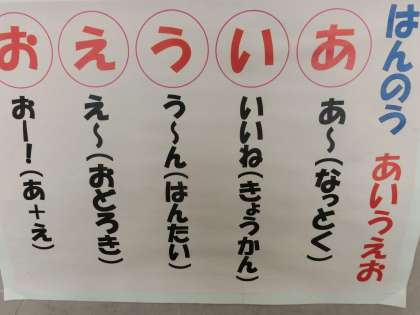 はんのう あいうえお
あ
あ～(なっとく)
い
いいね(きょうかん)
う
う～ん(はんたい)
え
え～(おどろき)
お
おー！(あ+え)